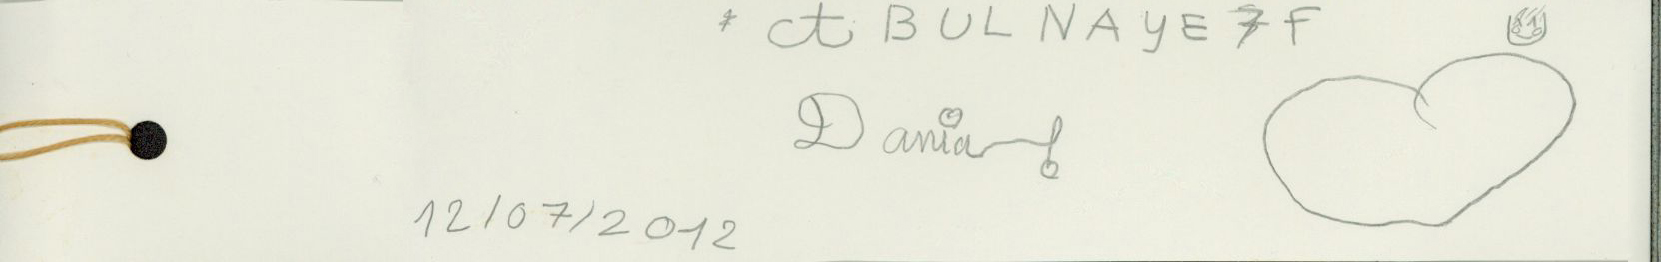 * ct BULNAYE7F
Dania
12/07/2012